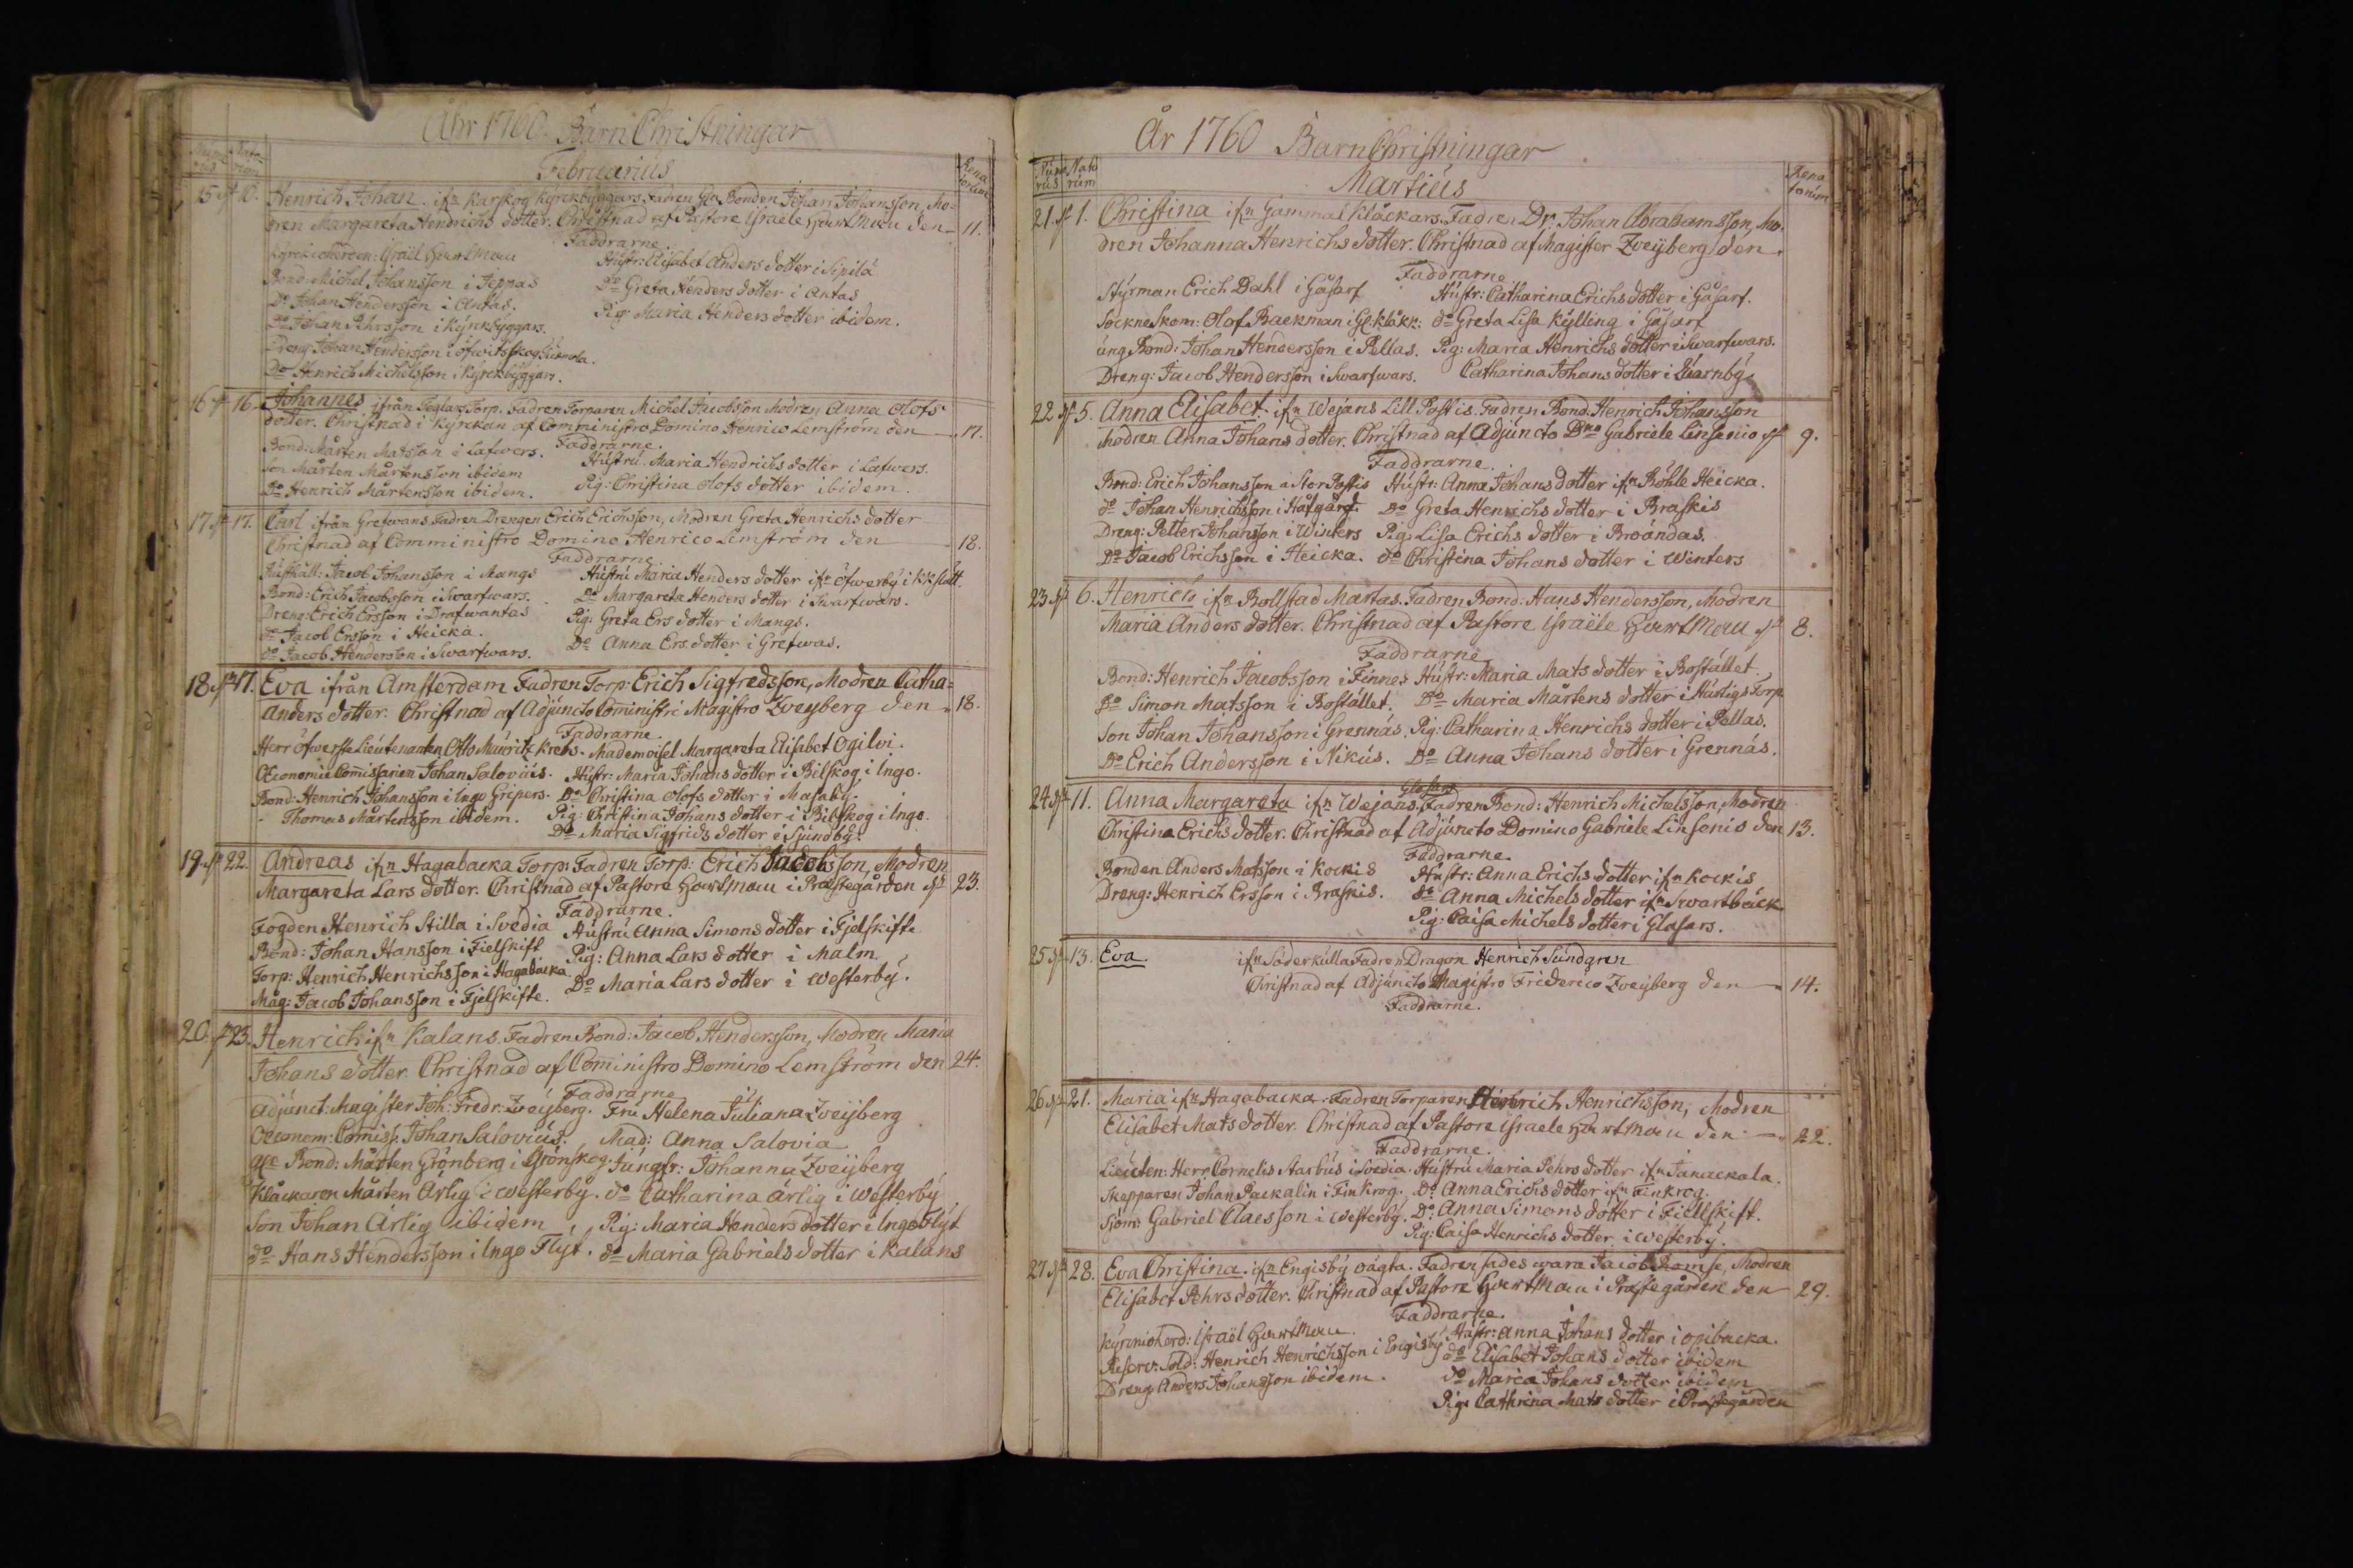 Åhr 1760. Barn Christningar
Februarius
Nume rus Nato rum Rena torum
15 10. Henrich Johan. ifn Karskog Kyrckbyggars Fadren Gla Bonden Johan Johansson, Mo-
dren Margareta Hendrichs dotter. Christnad af Pastore Israele Hartman den 11.
Faddrarne
Kyrckioherden: Israël Hartman Hustr: Elisabet Anders dotter i Sipilä
Bond: Michel Johansson i Jeppas Do Greta Henders dotter i Antas
Do Johan Hendersson i Antas. Pig: Maria Henders dotter ibidem.
Do Johan Pehrsson i Kyrckbyggars.
Dreng Johan Hendersson i öfwitsskog
Do Henrich Michelsson i Kyrckbyggars.
16 16. Johannes ifrån Teglars Torp. Fadren Torparen Michel Jacobsson Modren Anna Olofs
dotter. Christnad i Kyrckan af Comministro Domino Henrico Lemström den 17.
Faddrarne.
Bond: Mårten Matsson i Lafwers. Hustru: Maria Hendrichs dotter i Lafwers.
Son Mårten Mårtensson ibidem Pig: Christina Olofs dotter ibidem.
Do Henrich Mårtensson ibidem.
17 17. Carl ifrån Grefwans Fadren Drengen Erich Erichsson, Modren Greta Henrichs dotter
Christnad af Comministro Domino Henrico Lemström den 18.
Faddrarne
Rusthåll: Jacob Johansson i Mangs Hustru Maria Henders dotter ifn öfwerby i KKslätt.
Bond: Erich Jacobsson i Swarfwars. Do Margareta Henders dotter i Swarfwars.
Dreng: Erich Ersson i Drafwantas Pig: Greta Ers dotter i Mangs.
do Jacob Ersson i Heicka. Do Anna Ers dotter i Grefwas.
do Jacob Hendersson i Swarfwars.
18 17. Eva ifrån Amsterdam Fadren Torp: Erich Sigfredsson, Modren Catha=
Anders dotter. Christnad af Adjuncto Cōministri Magistro Zveyberg den 18.
Faddrarne.
Herr öfwerste Lieutenanten Otto Mauritz Krebs. Mademoisel Margareta Elisabet Ogilvi.
Œconomie Commissarien Johan Salovius. Hustr: Maria Johans dotter i Bilskog i Ingo.
Bond: Henrich Johansson i Ingo Gripers. Do Christina Olofs dotter i Masaby.
- Thomas Mårtensson ibidem. Pig: Christina Johans dotter i Bilskog i Ingo.
Do Maria Sigfrids dotter i Sjundby.
19 22. Andreas ifn Hagabacka Torp: Fadren Torp: Erich Jacobsson, Modren
Margareta Lars dotter. Christnad af Pastore Hartman i Præstegården 23.
Faddrarne.
Fogden Henrich Stilla i Svedia Hustru Anna Simons dotter i Fjelskifte
Bond: Johan Hansson i Fielskift Pig: Anna Lars dotter i Malm.
Torp: Henrich Henrichsson i Hagabacka. Do Maria Lars dotter i Westerby.
Måg: Jacob Johansson i Fjelskifte.
20 23. Henrich ifn Kalans. Fadren Bond: Jacob Hendersson, Modren Maria
Johans dotter. Christnad af Cōministro Domino Lemström den 24.
Faddrarne
Adjunct: Magister Joh: Fredr: Zveyberg. Fru Helena Juliana Zveyberg
Œconom: Comiss: Johan Salovius. Mad: Anna Salovia
Bond: Mårten Grönberg i Grönskog. Jungfr: Johanna Zveyberg
Klåckaren Mårten Ärlig i Westerby. do Catharina ärlig i Westerby
Son Johan Ärlig ibidem Pig: Maria Henders dotter i Ingo Flyt
do Hans Hendersson i Ingo Flyt. do Maria Gabriels dotter i Kalans
År 1760 Barn Christningar
Martius
Nume rus Nato rum Rena torum
21 1. Christina ifn Gammal Klåckars. Fadren Dr: Johan Abrahamsson, Mo-
dren Johanna Henrichs dotter. Christnad af Magister Zveyberg den
Faddrarne
Styrman Erich Dahl i Gåsarf Hustr: Catharina Erichs dotter i Gåsarf.
Sockne Skom: Olof Backman i Gl: Klåkk: do Greta Lisa Kylling i Gåsarf
ung Bond: Johan Hendersson i Pellas. Pig: Maria Henrichs dotter i Swarfwars.
Dreng: Jacob Hendersson i Swarfwars. Catharina Johans dotter i Qvarnby
22 5. Anna Elisabet. ifn Wejans Lill Postis. Fadren Bond: Henrich Johansson
Modren Anna Johans dotter. Christnad af Adjuncto Dno Gabriele Linsenio 9.
Faddrarne.
Bond: Erich Johansson a Stor Postis Hustr: Anna Johans dotter ifn Böhle Heicka.
do Johan Henrichsson i Håfgård. Do Greta Henrichs dotter i Braskis
Dreng: Petter Johansson i Winters Pig: Lisa Erichs dotter i Broändas.
Do Jacob Erichsson i Heicka. do Christina Johans dotter i Winters
23 6. Henrich ifn Bollstad Martas. Fadren Bond: Hans Hendersson, Modren
Maria Anders dotter. Christnad af Pastore Israële Hartman 8.
Faddrarne
Bond: Henrich Jacobsson i Finnes Hustr: Maria Mats dotter i Bostället
Do Simon Matsson i Bostället. Do Maria Mårtens dotter i Hurtigs Torp
Son Johan Johansson i Grennäs. Pig: Catharina Henrichs dotter i Pellas.
Do Erich Andersson i Nikus. Do Anna Johans dotter i Grennäs.
24 11. Anna Margareta ifn Wejans Glasars Fadren Bond: Henrich Michelsson, Modren
Christina Erichs dotter. Christnad af Adjuncto Domino Gabriele Linsenio den 13.
Faddrarne.
Bonden Anders Matsson i Kockis Hustr: Anna Erichs dotter ifn Kockis
Dreng: Henrich Ersson i Braskis. do Anna Michels dotter ifn Swartbäck
Pig: Caisa Michels dotter i Glasars.
25 13. Eva ifn Söderkulla Fadren Dragon Henrich Sundgren
Christnad af Adjuncto Magistro Friderico Zveyberg den 14.
Faddrarne.
26 21. Maria ifn Hagabacka. Fadren Torparen Henrich Henrichsson, Modren
Elisabet Mats dotter. Christnad af Pastore Israele Hartman den 22.
Faddrarne.
Lieuten: Herr Cornelis Aarbus i Svedia. Hustru Maria Pehrs dotter ifn Janackala.
Skepparen Johan Packalin i Finkrog. Do Anna Erichs dotter ifn Finkrog.
Sjöm: Gabriel Claesson i Westerby. Do: Anna Simons dotter i Fiellskift.
Pig: Caisa Henrichs dotter i Westerby.
27 28. Eva Christina. ifn Engisby oägta. Fadren sades wara Jacob Romse, Modren
Elisabet Pehrs dotter. Christnad af Pastore Hartman i Prästegården den 29.
Faddrarne.
Kyrckioherd: Israël Hartman. Hustr: Anna Johans dotter i Ogibacka.
Reserv: Sold: Henrich Henrichsson i Engisby do Elisabet Johans dotter ibidem
Dreng Anders Johansson ibidem. do Maria Johans dotter ibidem
Pig: Cathrina Mats dotter i Prästegården